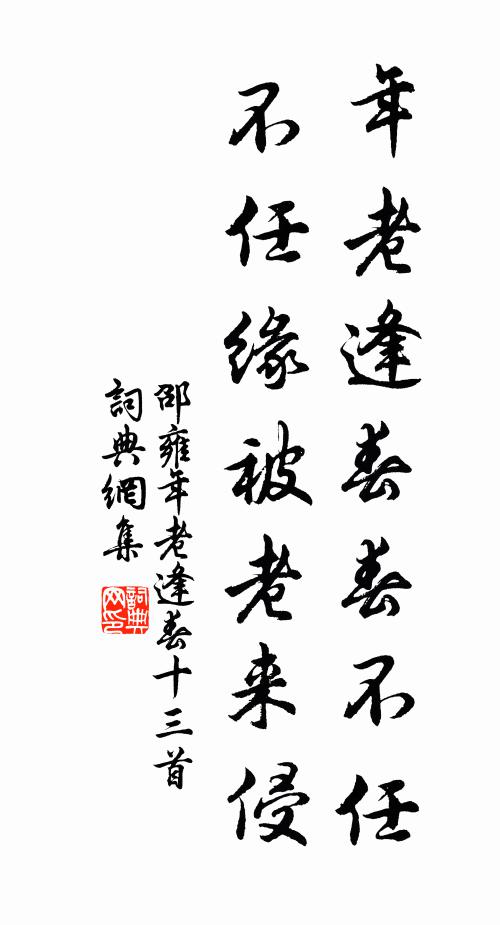 年老逢春春不任
不任缘被老来侵
邵雍年老逢春十三首
詞典網集
詞典网印